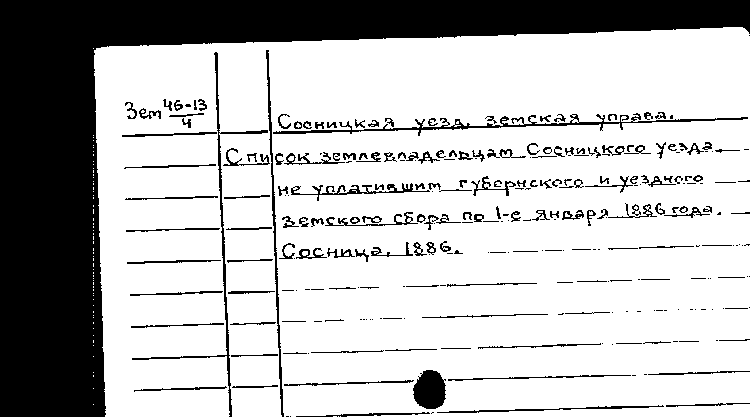 Зем 46-13
4
Сосницкая уезд. земская управа.
Список землевладельцам Сосницкого уезда,
не уплатившим губернского и уездного
земского сбора по 1-е января 1886 года.
Сосница, 1886.